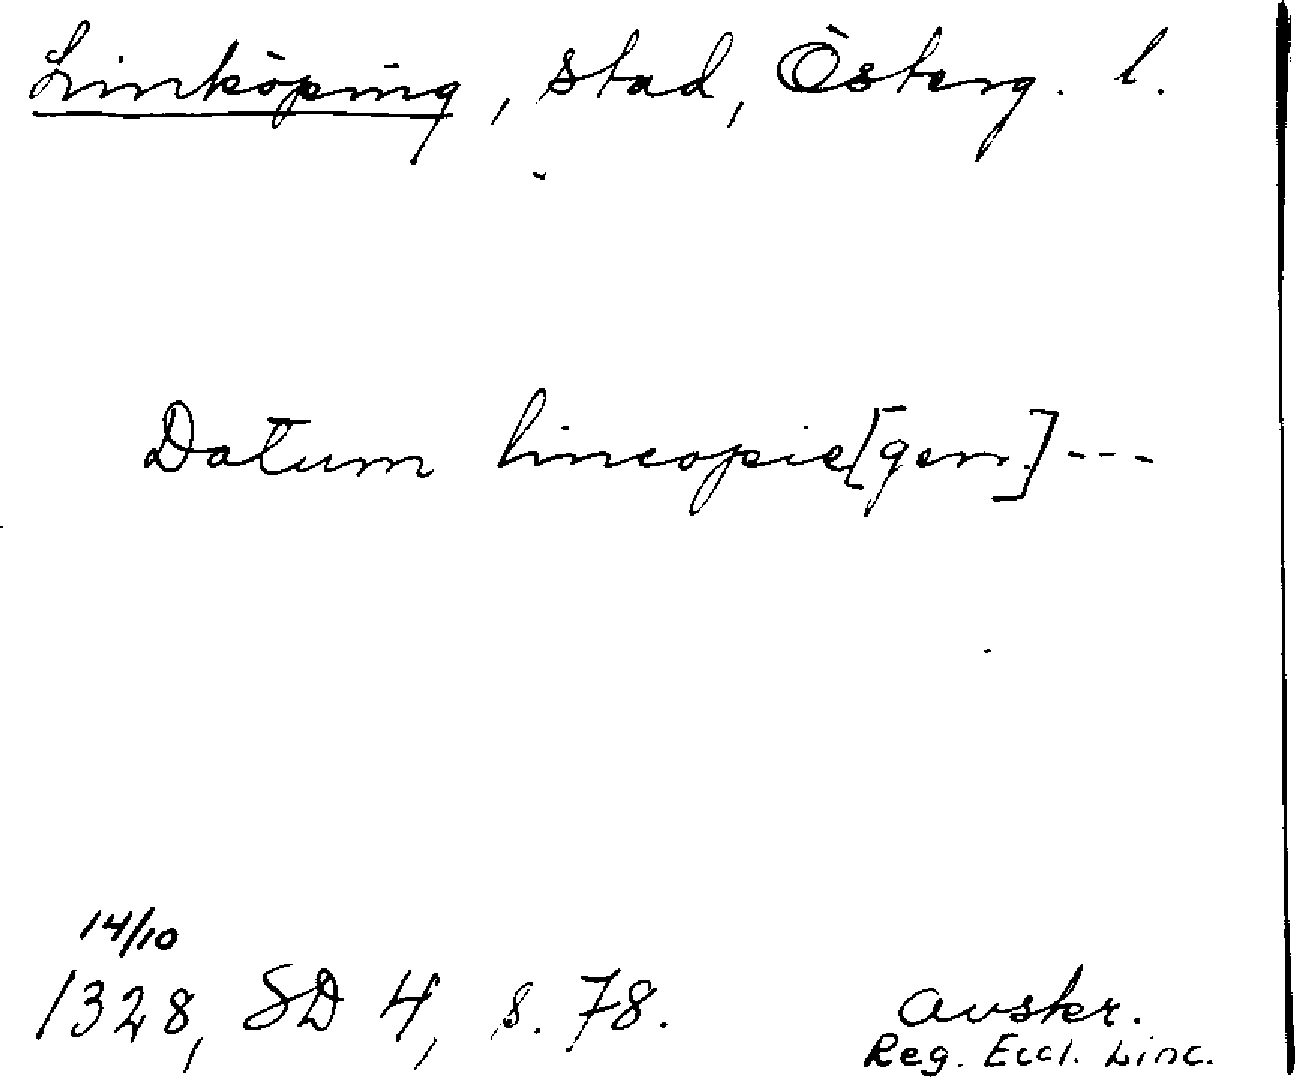 Linköping, stad, Österg. l.
Datum lincopie[gen.]---
14/10
1328, SD 4, s. 78.
avskr.
Reg. Eccl. Linc.